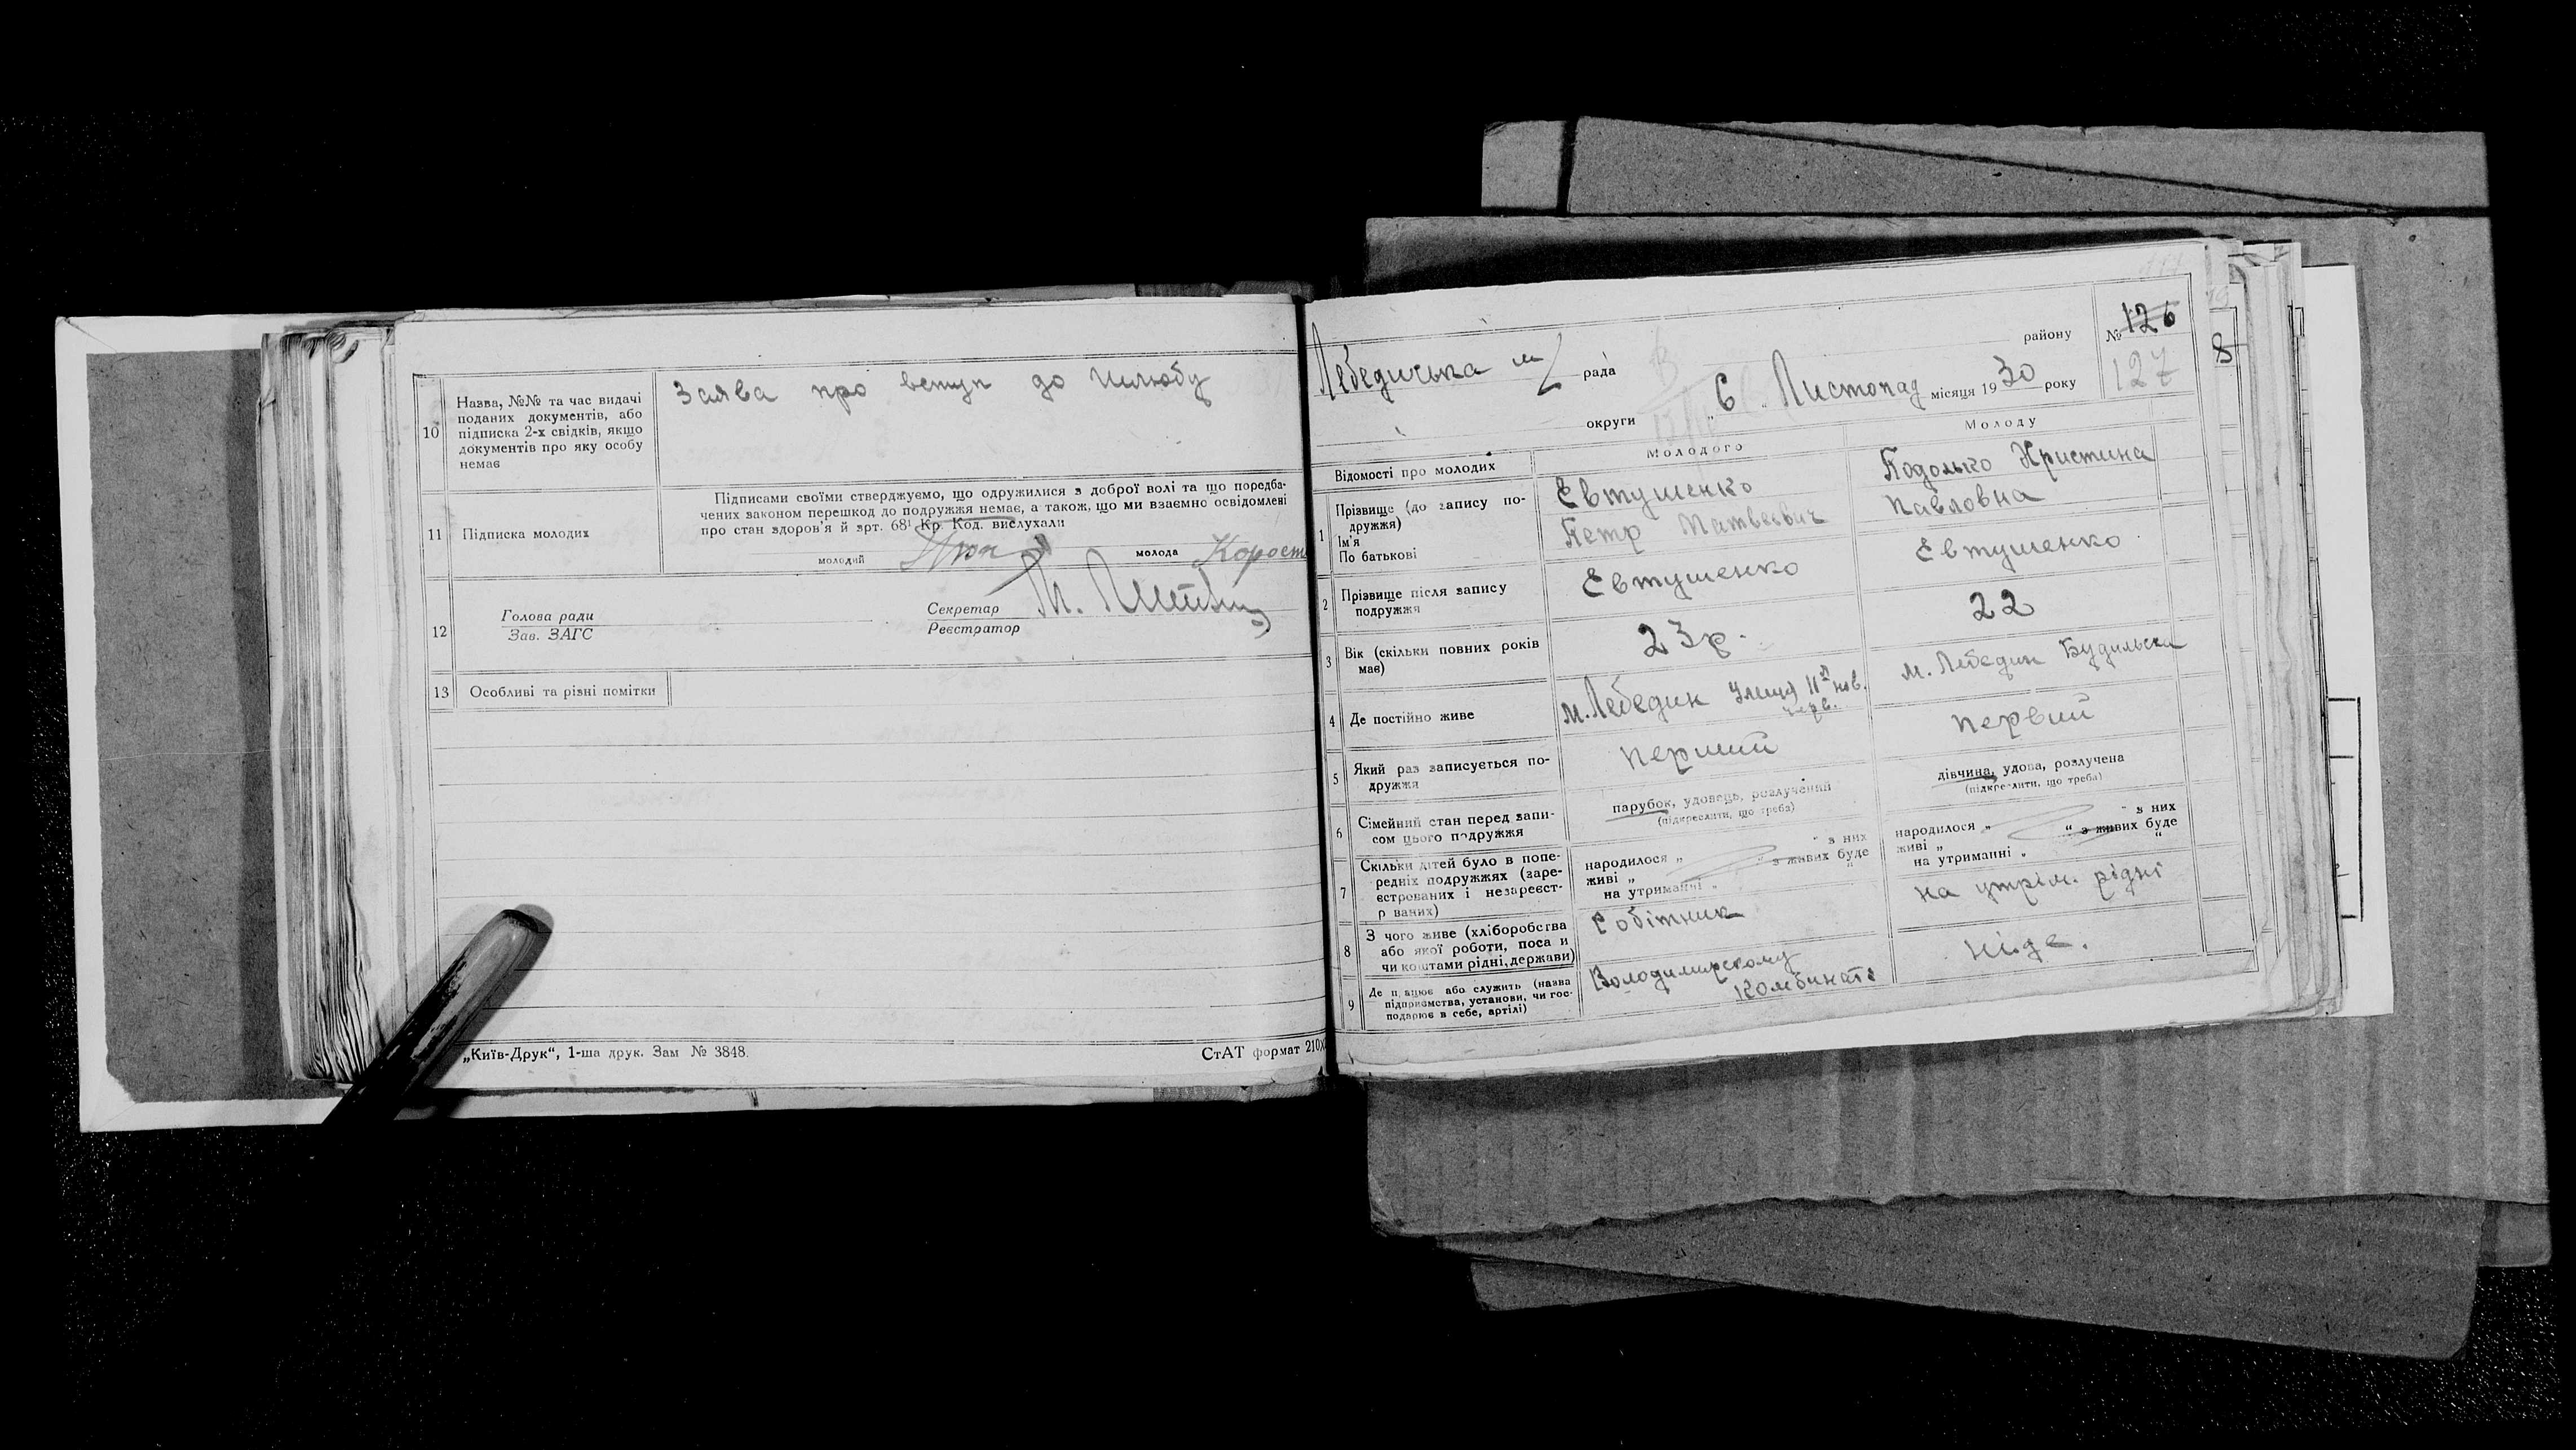 10
Назва, №№ та час видачі
поданих документів, або
підписка 2-х свідків, якщо
документів про яку особу
немає
Заява про вступ до Шлюбу
11
Підписка молодих
Підписами своїми стверджуємо, що одружилися з доброї волі та що передба-
чених законом перешкод до подружжя немає, а також, що ми взаємно освідомлені
про стан здоров'я й зрт. 68¹ Кр. Код. вислухали
молодий
молода Корост
12
Голова ради
Зав. ЗАГС
Секретар
Реєстратор
13
Особливі та різні помітки
„Київ-Друк“, 1-ша друк. Зам № 3848.
СтАТ формат 210х
Лебединська м рада
району
№ 126
127
8
округи
„6“ Листопад місяця 1930 року
Відомості про молодих
Молодого
Молоду
1
Прізвище (до запису по-
дружжя)
Ім'я
По батькові
Евтушенко
Петр Матвеевич
Подолько Христина
Павловна
2
Прізвище після запису
подружжя
Евтушенко
Евтушенко
3
Вік (скільки повних років
має)
23р.
22
4
Де постійно живе
м. Лебедин Улиця 11й нов.
черв.
м. Лебедин Будильска
5
Який раз записується по-
дружжя
перший
первий
6
Сімейний стан перед запи-
сом цього подружжя
парубок, удовець, розлучений
(підкреслити, що треба)
дівчина, удова, розлучена
(підкреслити, що треба)
7
Скільки дітей було в попе-
редніх подружжях (заре-
єстрованих і незареєст-
р ваних)
народилося „ “ з них
живі „ “ з живих буде
на утриманні „ “
народилося „ “ з них
живі „ “ з живих буде
на утриманні „ “
8
З чого живе (хліборобства
або якої роботи, поса и
чи коштами рідні, держави)
Робітник
на утрим. рідні
9
Де п ацює або служить (назва
підприємства, установи, чи гос-
подарює в себе, артілі)
Володимирскому
Комбинаті
ніде.